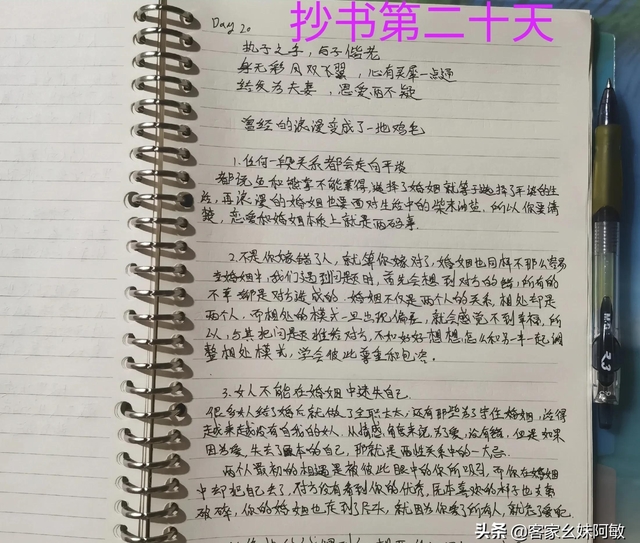 抄书第二十天
Day 20
执子之手，与子偕老
身无彩凤双飞翼，心有灵犀一点通
结发为夫妻，恩爱两不疑
曾经的浪漫变成了一地鸡毛
1.任何一段关系都会走向平淡
都说鱼和熊掌不能兼得，选择了婚姻就等于选择了平淡的生
活，再浪漫的婚姻也要面对生活中的柴米油盐.所以你要清
楚，恋爱和婚姻本质上就是两码事.
2.不是你嫁错了人，就算你嫁对了，婚姻也同样不那么容易
在婚姻中，我们遇到问题时，首先会想到对方的错，所有的
不幸都是对方造成的.婚姻不仅是两个人的关系，相处却是
两个人.而相处的模式一旦出现偏差，就会感觉不到幸福，所
以，与其把问题推给对方，不如好好想想怎么和另一半一起调
整相处模式，学会彼此尊重和包容.
3.女人不能在婚姻中迷失自己.
很多女人结了婚后就做了全职太太，还有那些为了守住婚姻，活得
越来越没有自我的女人.从情感角度来说，为了爱，没有错，但是如果
因为爱，失去了原本的自己，那就是两性关系中的一大忌.
两个人最初的相遇是被彼此眼中的你所吸引，而你在婚姻
中却把自己丢了，对方没有看到你的优秀，原本喜欢的样子也支离
破碎，你的婚姻也走到了尽头，就因为你爱了所有人，就忘了爱自己.
M&G
R3
头条 @客家幺妹阿敏